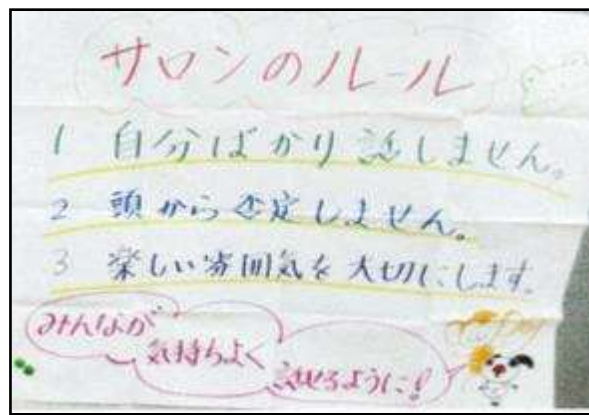 サロンのルール
1 自分ばかり話しません。
2 頭から否定しません。
3 楽しい雰囲気を大切にします。
みんなが
気持ちよく
話せるように!